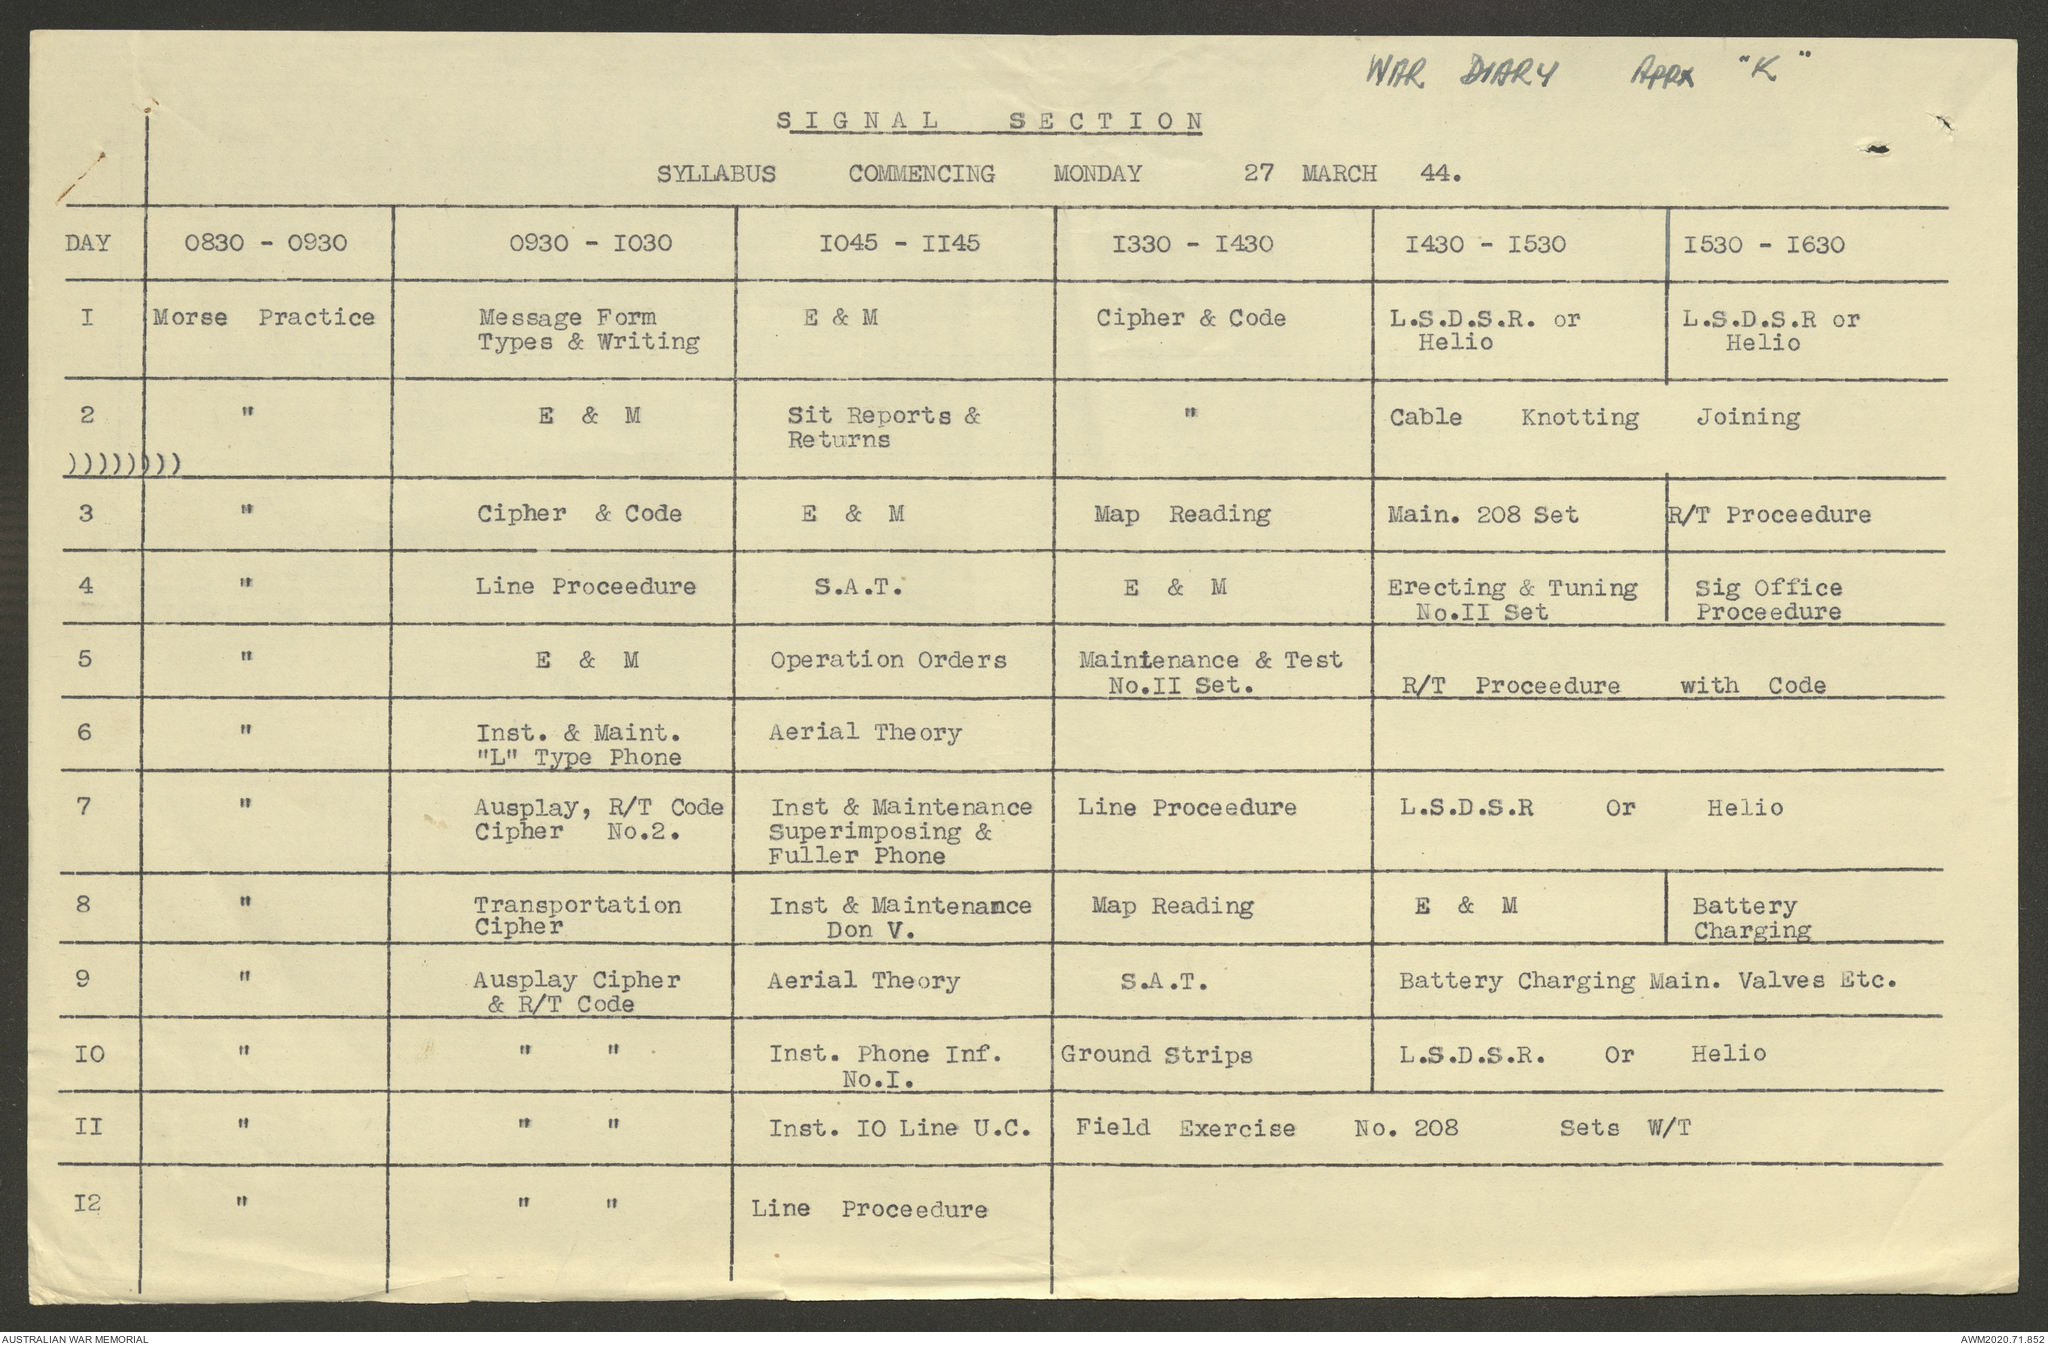 WAR DIARY Appx "K"
SIGNAL SECTION
SYLLABUS COMMENCING MONDAY 27 MARCH 44.
DAY 0830 - 0930 0930 - I030 I045 - II45 I330 - I430 I430 - I530 I530 - I630
I Morse Practice Message Form E & M Cipher & Code L.S.D.S.R. or L.S.D.S.R or
Types & Writing Helio Helio
2 " E & M Sit Reports & " Cable Knotting Joining
Returns
))))))))
3 " Cipher & Code E & M Map Reading Main. 208 Set R/T Proceedure
4 " Line Proceedure S.A.T. E & M Erecting & Tuning Sig Office
No.II Set Proceedure
5 " E & M Operation Orders Maintenance & Test
No.II Set. R/T Proceedure with Code
6 " Inst. & Maint. Aerial Theory
"L" Type Phone
7 " Ausplay, R/T Code Inst & Maintenance Line Proceedure L.S.D.S.R Or Helio
Cipher No.2. Superimposing &
Fuller Phone
8 " Transportation Inst & Maintenance Map Reading E & M Battery
Cipher Don V. Charging
9 " Ausplay Cipher Aerial Theory S.A.T. Battery Charging Main. Valves Etc.
& R/T Code
IO " " " Inst. Phone Inf. Ground Strips L.S.D.S.R. Or Helio
No.I.
II " " " Inst. IO Line U.C. Field Exercise No. 208 Sets W/T
I2 " " " Line Proceedure
AUSTRALIAN WAR MEMORIAL AWM2020.71.852